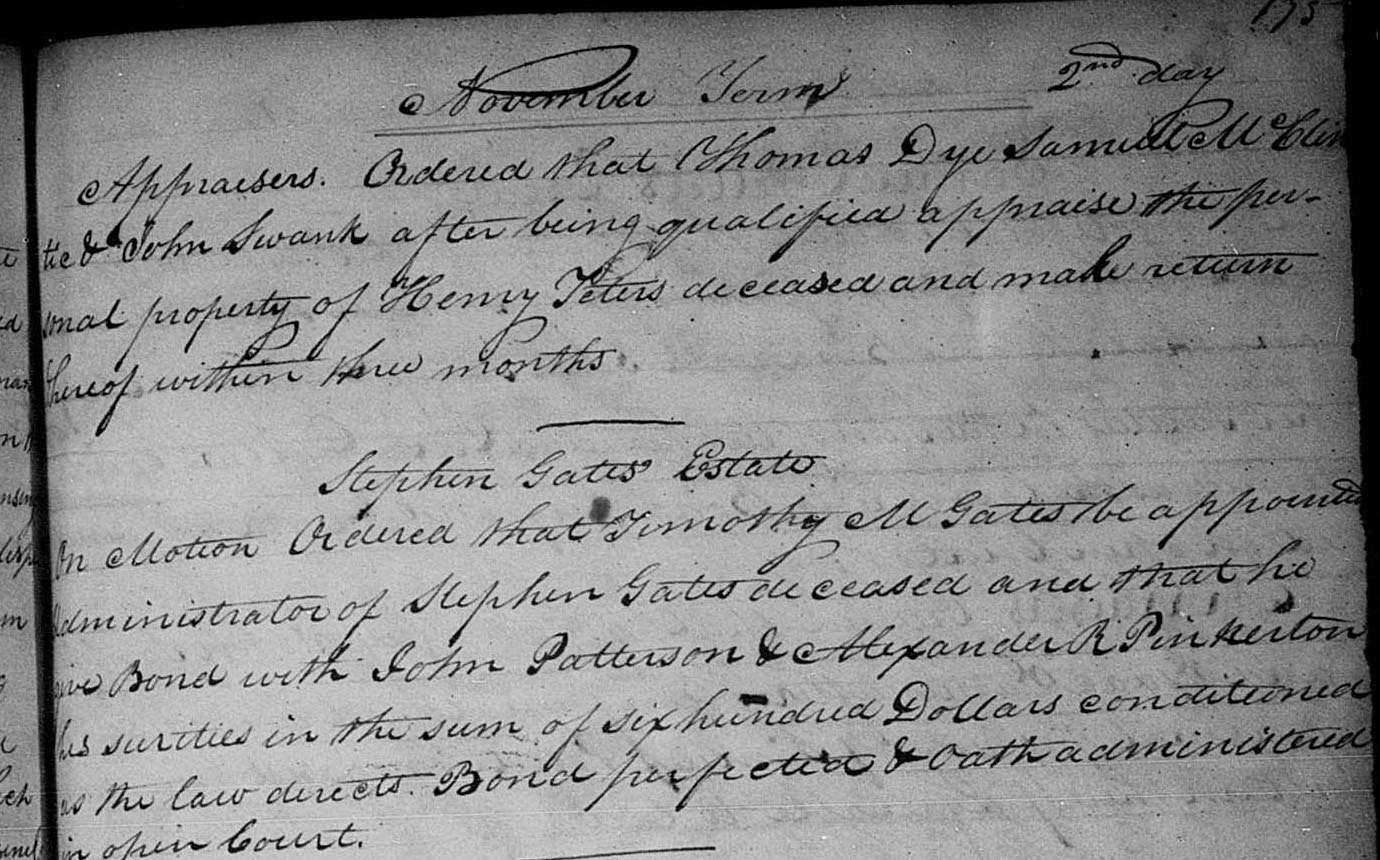 175
November Term 2nd day
Appraisers. Ordered that Thomas Dye Samuel McClin
tic & John Swank after being qualified appraise the per-
sonal property of Henry Peters deceased and make return
thereof within three months
Stephen Gates' Estate
On Motion Ordered that Timothy M Gates be appointed
Administrator of Stephen Gates deceased and that he
give Bond with John Patterson & Alexander R Pinkerton
his surities in the sum of six hundred Dollars conditioned
as the law directs. Bond perfected & Oath administered
in open Court.